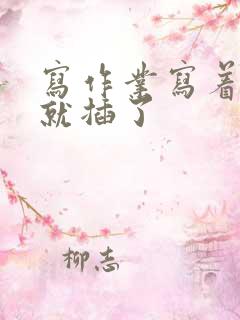 寫作業寫着
就插了
柳志